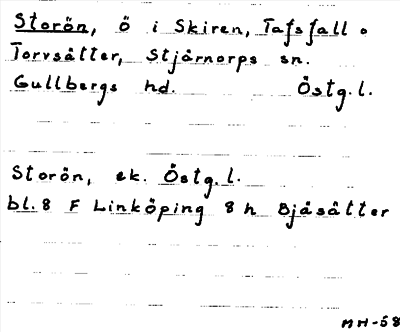 Storön, ö i Skiren, Tafsfall o
Torvsätter, Stjärnorps sn.
Gullbergs hd. Östg.l.
Storön, ek. Östg.l.
bl.8 F Linköping 8 h Bjäsätter
MH-58